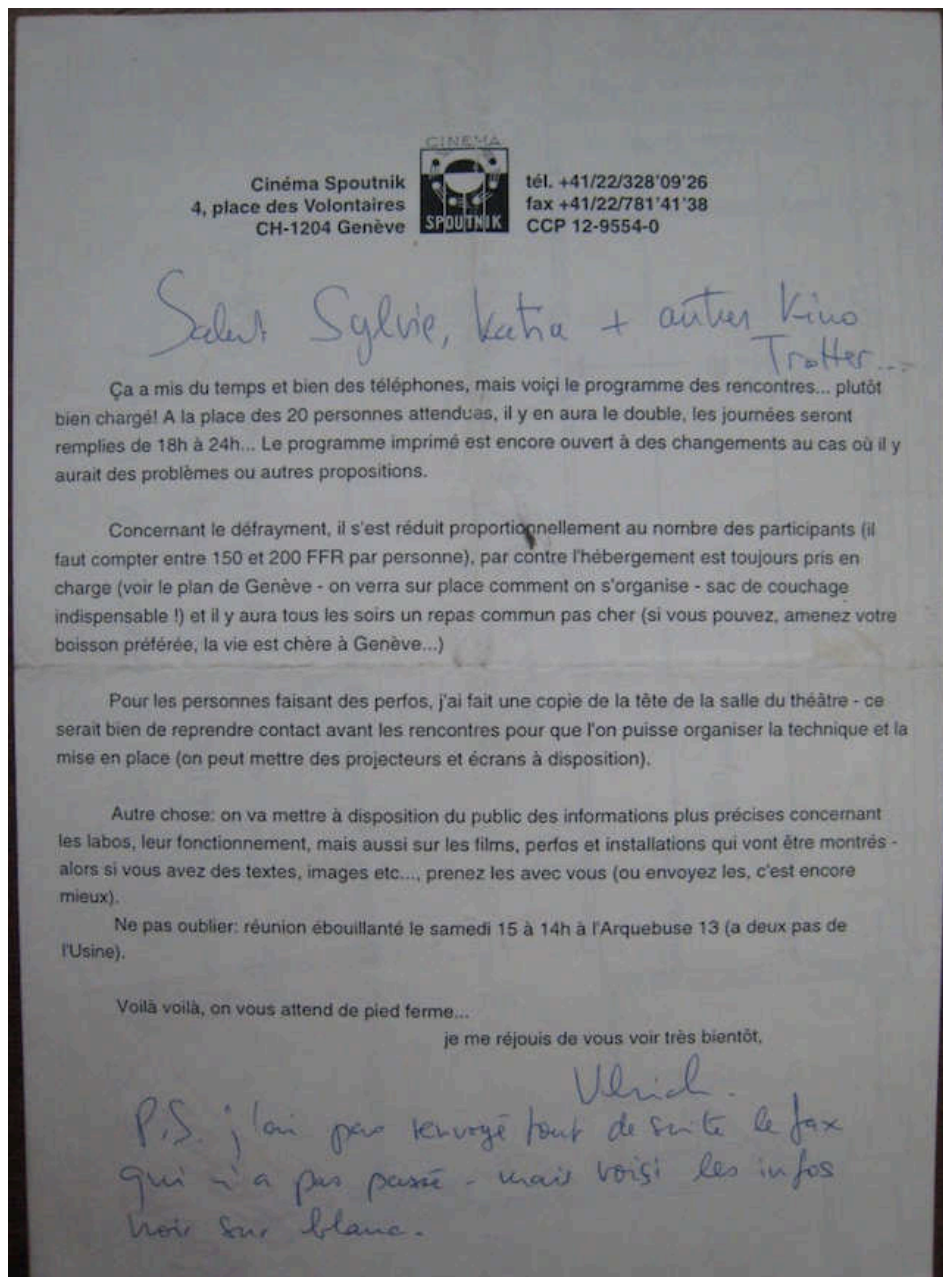 CINEMA
SPOUTNIK
Cinéma Spoutnik
4, place des Volontaires
CH-1204 Genève
tél. +41/22/328'09'26
fax +41/22/781'41'38
CCP 12-9554-0
Salut Sylvie, Katia + autres Kino
Trotter...
Ça a mis du temps et bien des téléphones, mais voiçi le programme des rencontres... plutôt
bien chargé! A la place des 20 personnes attendues, il y en aura le double, les journées seront
remplies de 18h à 24h... Le programme imprimé est encore ouvert à des changements au cas où il y
aurait des problèmes ou autres propositions.
Concernant le défrayment, il s'est réduit proportionnellement au nombre des participants (il
faut compter entre 150 et 200 FFR par personne), par contre l'hébergement est toujours pris en
charge (voir le plan de Genève - on verra sur place comment on s'organise - sac de couchage
indispensable !) et il y aura tous les soirs un repas commun pas cher (si vous pouvez, amenez votre
boisson préférée, la vie est chère à Genève...)
Pour les personnes faisant des perfos, j'ai fait une copie de la tête de la salle du théâtre - ce
serait bien de reprendre contact avant les rencontres pour que l'on puisse organiser la technique et la
mise en place (on peut mettre des projecteurs et écrans à disposition).
Autre chose: on va mettre à disposition du public des informations plus précises concernant
les labos, leur fonctionnement, mais aussi sur les films, perfos et installations qui vont être montrés -
alors si vous avez des textes, images etc..., prenez les avec vous (ou envoyez les, c'est encore
mieux).
Ne pas oublier: réunion ébouillanté le samedi 15 à 14h à l'Arquebuse 13 (a deux pas de
l'Usine).
Voilà voilà, on vous attend de pied ferme...
je me réjouis de vous voir très bientôt,
Ulrich.
P.S. j'ai pas renvoyé tout de suite le fax
qui n'a pas passé - mais voisi les infos
noir sur blanc.